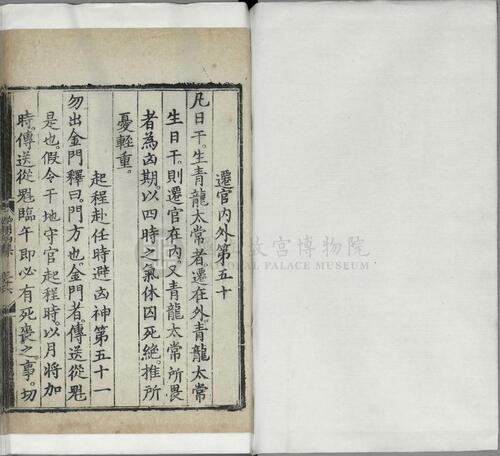 遷官內外第五十
凡日干。生青龍太常者。遷在外。青龍太常
生日干。則遷官在內。又青龍太常所畏
者為凶期。以四時之氣休囚死絕。推所
憂輕重。
起程赴任時避凶神第五十一
勿出金門釋曰。門方也。金門者。傳送從魁
是也。假令干地守官起程時。以月將加
時。傳送從魁臨午即必有死喪之事。切
故宮博物院
PALACE MUSEUM